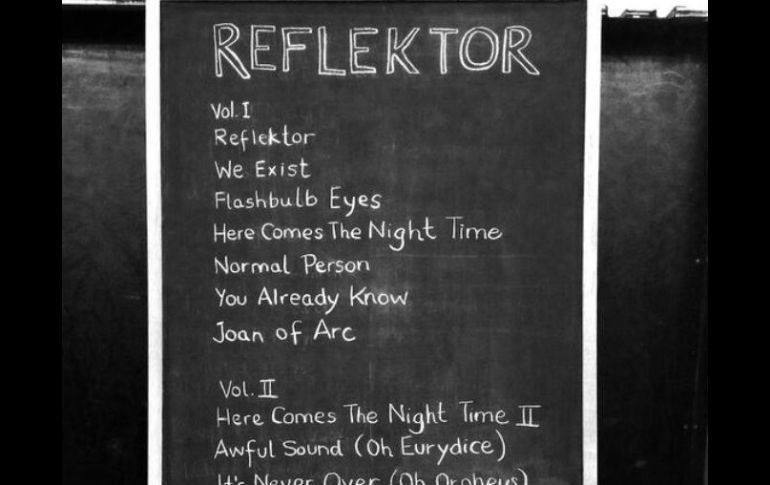 REFLEKTOR
Vol. I
Reflektor
We Exist
Flashbulb Eyes
Here Comes The Night Time
Normal Person
You Already Know
Joan of Arc
Vol. II
Here Comes The Night Time II
Awful Sound (Oh Eurydice)
It's Never Over (Oh Orpheus)